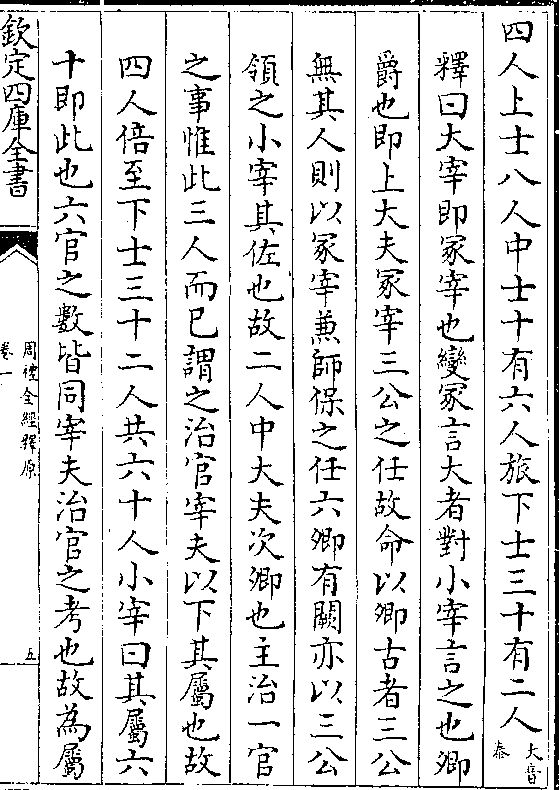 四人上士八人中士十有六人旅下士三十有二人大音泰
釋曰大宰即冢宰也變冢言大者對小宰言之也卿
爵也即上大夫冢宰三公之任故命以卿古者三公
無其人則以冢宰兼師保之任六卿有闕亦以三公
領之小宰其佐也故二人中大夫次卿也主治一官
之事惟此三人而已謂之治官宰夫以下其屬也故
四人倍至下士三十二人共六十人小宰曰其屬六
十即此也六官之數皆同宰夫治官之考也故為屬
欽定四庫全書
周禮全經釋原
卷一
五